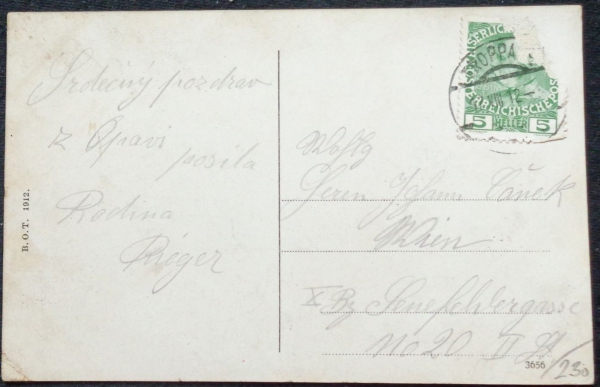 Srdečný pozdrav
z Opavi
posila
Rodina
Rieger
B.O.T. 1912.
KAISERLICHE
TROPPAU
ERREICHISCHE POS
5 HELLER 5
Wohlg
Herrn Johann Vaněk
Wien
X Bz Senefeldergasse
No 20 II St
3656
/230